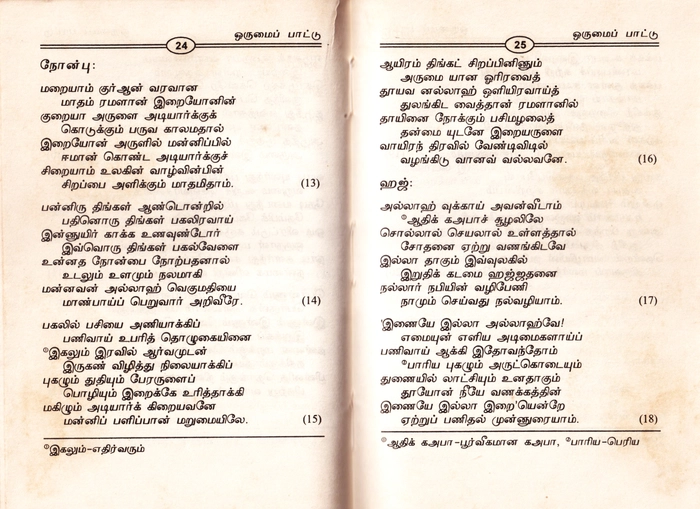 ஒருமைப் பாட்டு
24
நோன்பு:
மறையாம் குர்ஆன் வரவான
மாதம் ரமளான் இறையோனின்
குறையா அருளை அடியார்க்குக்
கொடுக்கும் பருவ காலமதால்
இறையோன் அருளில் மன்னிப்பில்
ஈமான் கொண்ட அடியார்க்குச்
சிறையாம் உலகின் வாழ்வின்பின்
சிறப்பை அளிக்கும் மாதமிதாம். (13)
பன்னிரு திங்கள் ஆண்டொன்றில்
பதினொரு திங்கள் பகலிரவாய்
இன்னுயிர் காக்க உணவுண்டோர்
இவ்வொரு திங்கள் பகல்வேளை
உன்னத நோன்பை நோற்பதனால்
உடலும் உளமும் நலமாகி
மன்னவன் அல்லாஹ் வெகுமதியை
மாண்பாய்ப் பெறுவார் அறிவீரே. (14)
பகலில் பசியை அணியாக்கிப்
பணிவாய் உபரித் தொழுகையினை
©இகலும் இரவில் ஆர்வமுடன்
இருகண் விழித்து நிலையாக்கிப்
புகழும் துதியும் பேரருளைப்
பொழியும் இறைக்கே உரித்தாக்கி
மகிழும் அடியார்க் கிறையவனே
மன்னிப் பளிப்பான் மறுமையிலே. (15)
©இகலும்-எதிர்வரும்
ஒருமைப் பாட்டு
25
ஆயிரம் திங்கட் சிறப்பினினும்
அருமை யான ஓரிரவைத்
தூயவ னல்லாஹ் ஒளியிரவாய்த்
துலங்கிட வைத்தான் ரமளானில்
தாயினை நோக்கும் பசிமழலைத்
தன்மை யுடனே இறையருளை
வாயிரந் திரவில் வேண்டிவிடில்
வழங்கிடு வானவ் வல்லவனே. (16)
ஹஜ்:
அல்லாஹ் வுக்காய் அவன்வீடாம்
©ஆதிக் கஅபாச் சூழலிலே
சொல்லால் செயலால் உள்ளத்தால்
சோதனை ஏற்று வணங்கிடவே
இல்லா தாகும் இவ்வுலகில்
இறுதிக் கடமை ஹஜ்ஜதனை
நல்லார் நபியின் வழிபேணி
நாமும் செய்வது நல்வழியாம். (17)
'இணையே இல்லா அல்லாஹ்வே!
எமையுன் எளிய அடிமைகளாய்ப்
பணிவாய் ஆக்கி இதோவந்தோம்
©பாரிய புகழும் அருட்கொடையும்
துணையில் லாட்சியும் உனதாகும்
தூயோன் நீயே வணக்கத்தின்
இணையே இல்லா இறை'யென்றே
ஏற்றுப் பணிதல் முன்னுரையாம். (18)
©ஆதிக் கஅபா-பூர்வீகமான கஅபா, ©பாரிய-பெரிய